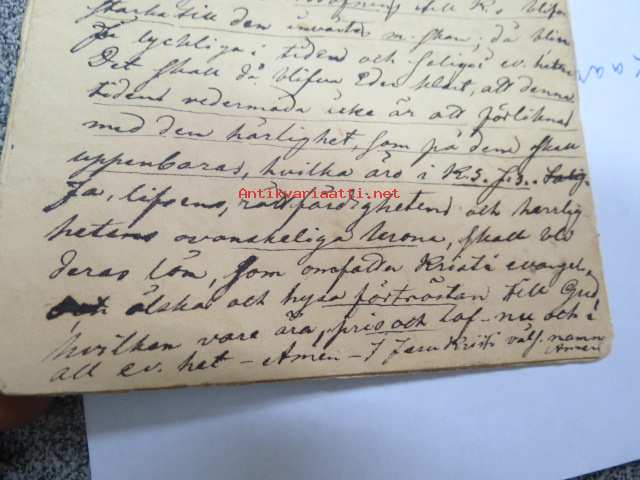 till K.
starka till den invärtes m:skan; då blin
Je lyckliga i tiden och Salige i ev. heten
Det skall då blifva Eder klart, att denna
tidens vedermöda icke är att förliknas
med den härlighet, som på dem skall
uppenbaras, hvilka äro i K. J.
Antikvariaatti.net
Ja, lifsens, rättfärdighetens och härrlig-
hetens ovanskeliga krona, skall bli
deras lön, som omfatta Kristi evangel.,
älska och hysa förtröstan till Gud,
hvilken vare ära, pris och lof nu och i
all ev. het - Amen - I Jesu Kristi väls. namn
Amen